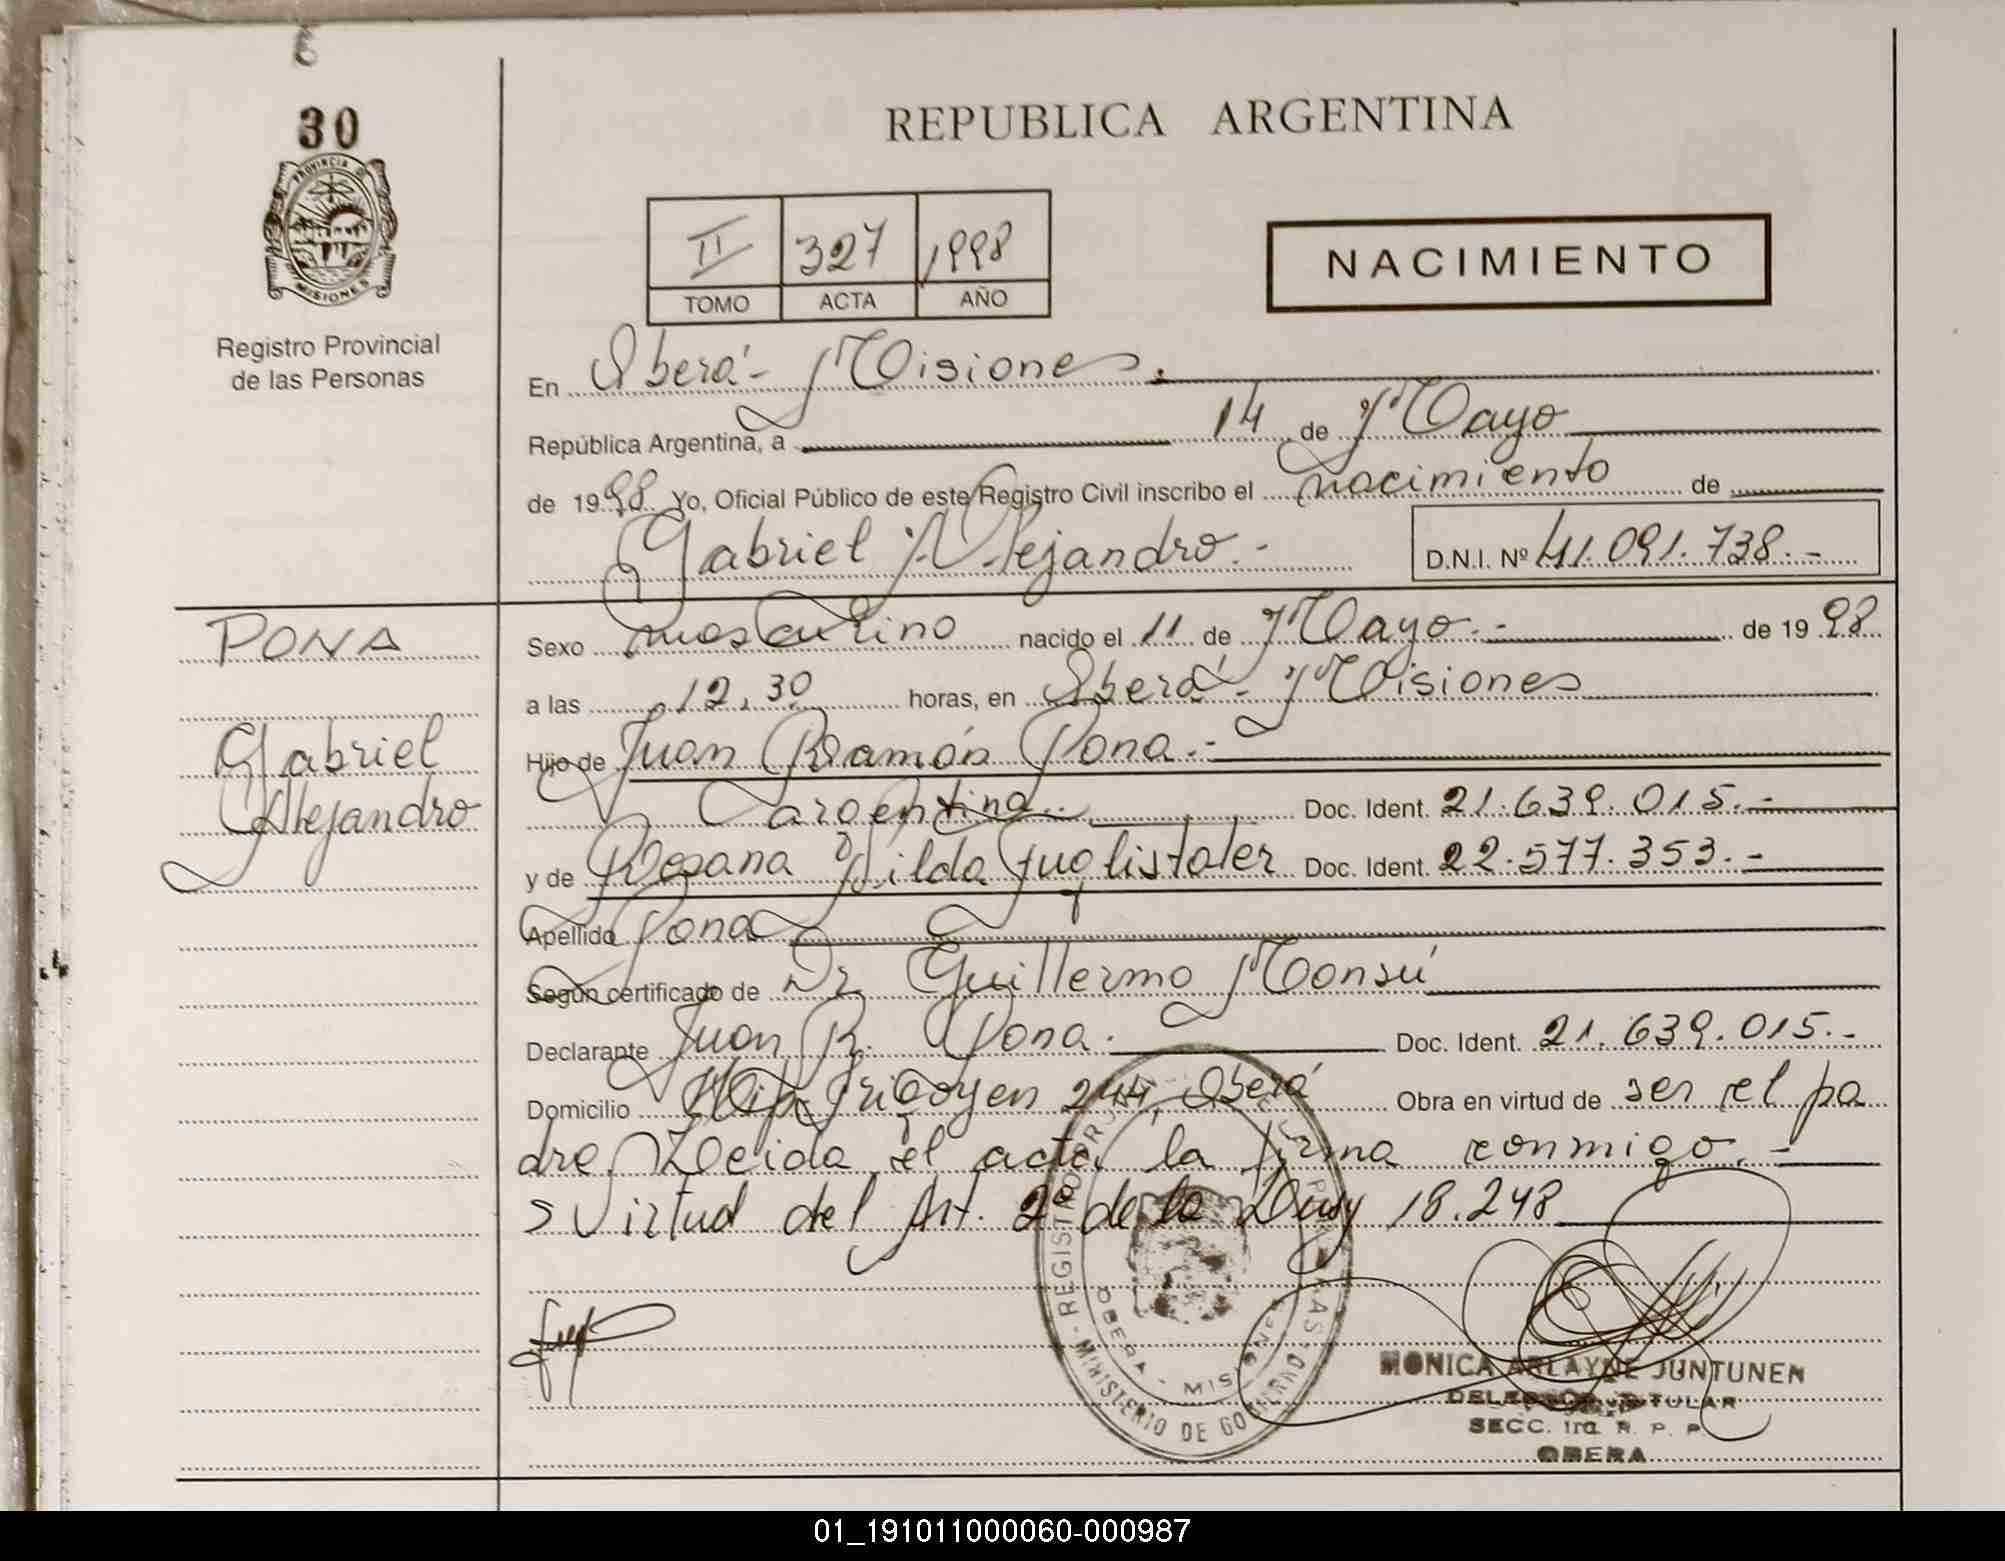 30
PROVINCIA DE
MISIONES
Registro Provincial
de las Personas
REPUBLICA ARGENTINA
II 327 1998
TOMO ACTA AÑO
NACIMIENTO
En Oberá - Misiones.
República Argentina, a 14 de Mayo
de 1998 Yo, Oficial Público de este Registro Civil inscribo el nacimiento de
Gabriel Alejandro.- D.N.I. Nº 41.091.738.-
PONA
Gabriel
Alejandro
Sexo masculino nacido el 11 de Mayo.- de 1998
a las 12,30 horas, en Oberá - Misiones
Hijo de Juan Ramón Pona.-
argentino Doc. Ident. 21.639.015.-
y de Rosana Hilda Fuglistaler Doc. Ident. 22.577.353.-
Apellido Pona
Según certificado de Dr. Guillermo Monsú
Declarante Juan R. Pona. Doc. Ident. 21.639.015.-
Domicilio Hip. Irigoyen 244, Oberá Obra en virtud de ser el pa
dre. Leida el acta la firma conmigo.-
Virtud del Art. 2º de la Ley 18.248
MONICA ARLAYNE JUNTUNEN
TITULAR
SECC. 1ra R. P. P
OBERA
OBERA - MISIONES
MINISTERIO DE GOBIERNO
01_191011000060-000987